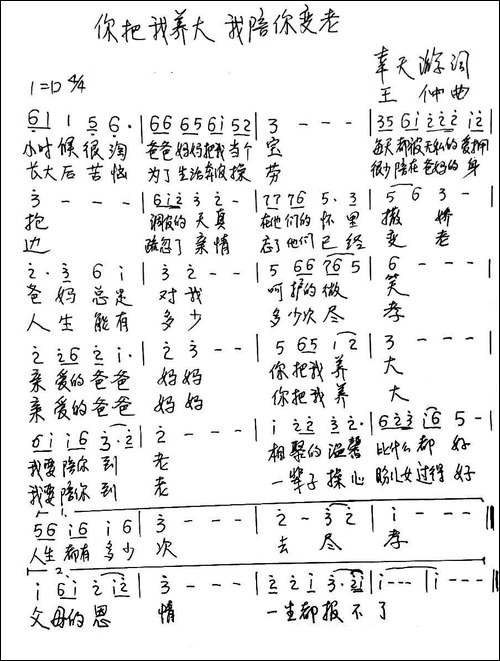 你把我养大 我陪你变老
1=D 4/4
奉天游词
王 仲曲
61 1 5 6· | 66 65 61 52 | 3 - - | 35 61 22 2 12 |
小时候很淘 爸爸妈妈把我当个 宝 每天都被无私的爱拥
长大后苦恼 为了生活奔波操 劳 很少陪在爸妈的身
3 - - - | 61 2 3 2 - | 77 76 5·3 | 5 6 3 - |
抱 调皮的天真 在他们的怀里 撒 娇
边 疏忽了亲情 忘了他们已经 变 老
2· 3 6 1 | 3 2 - - | 5 66 76 5 | 6 - - |
爸妈总是 对我 呵护的微 笑
人生能有 多少 多少次尽 孝
2 26 2 1· | 2 3 - - | 5 65 12 | 3 - - - |
亲爱的爸爸 妈妈 你把我养 大
亲爱的爸爸 妈妈 你把我养 大
61 16 3·2 | 2 - - - | 1 22 32· | 6 23 16 5 - |
我要陪你到 老 相聚的温馨 比什么都 好
我要陪你到 老 一辈子操心 盼儿女过得好
1.
56 16 16 | 3 - - - | 2 - 32 | 1 - - - :||
人生都有多少 次 去 尽 孝
2.
1 61 2 12 | 3 - - - | 22 1 3·21 | 1 - - - | 1 - - - ||
父母的恩 情 一生都报不了